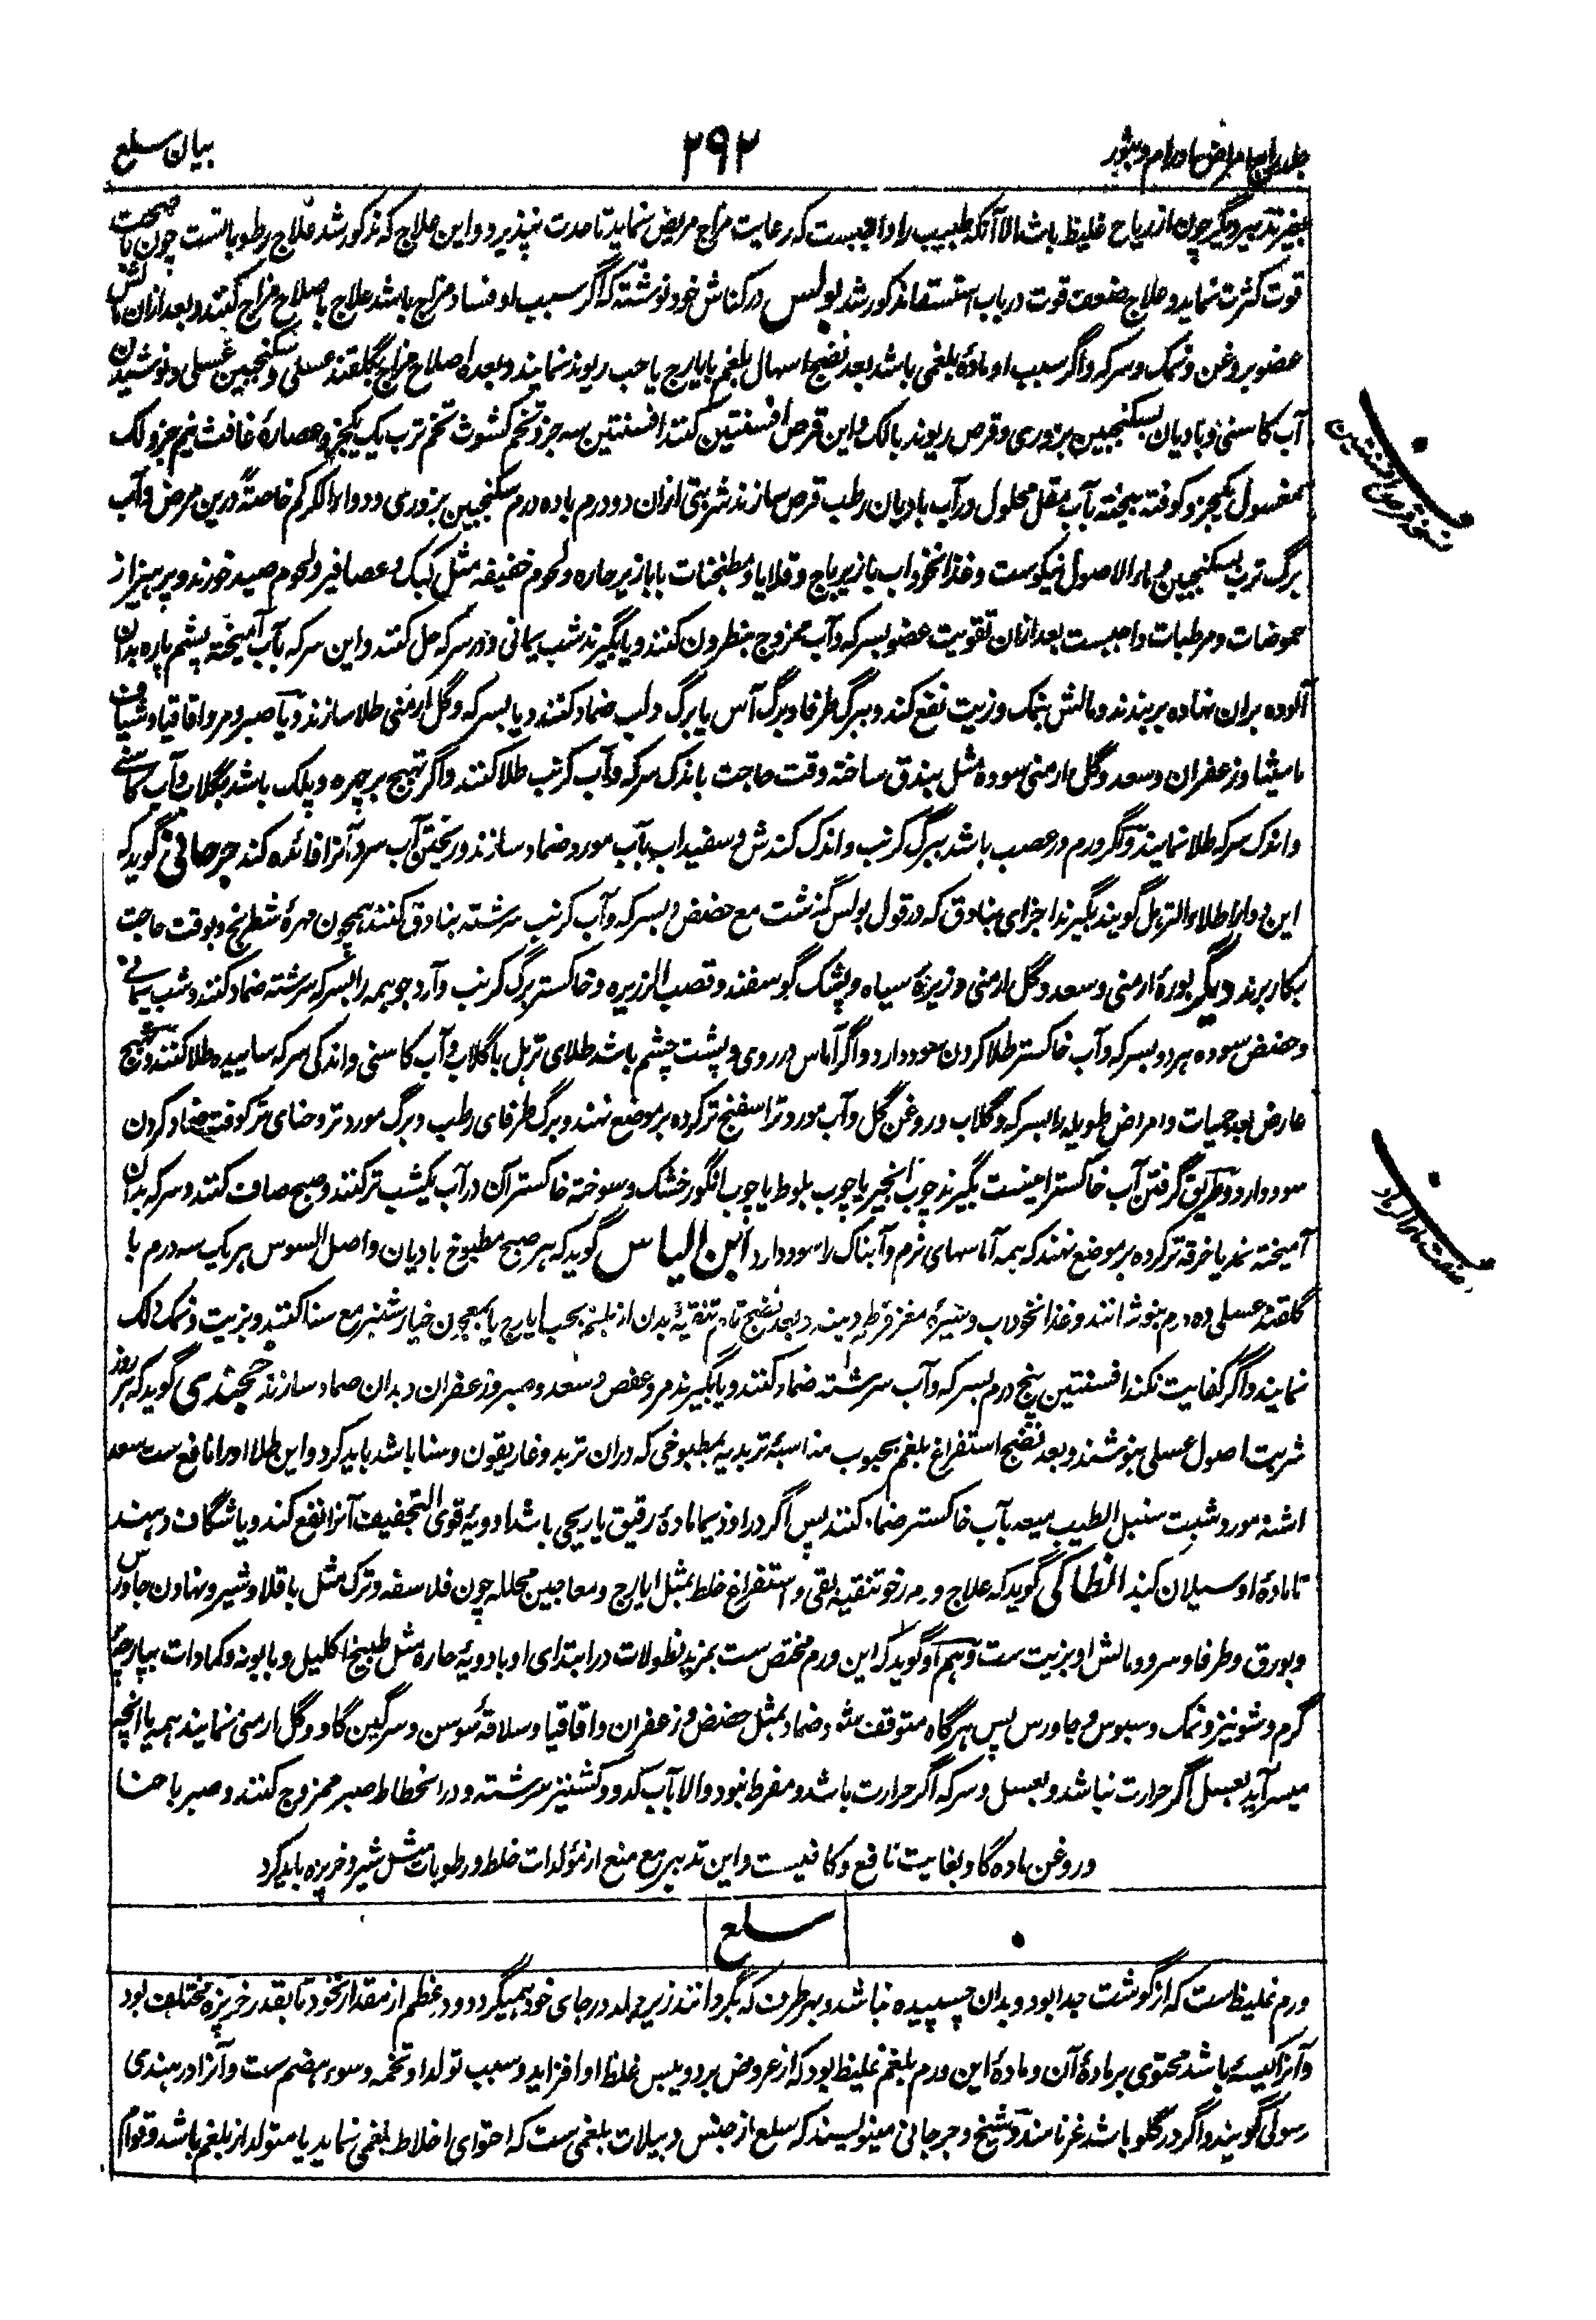 بیان سلع
۲۹۲
جلد رابع امراض اورام و بثور
بغیر تدبیر دیگر چون از ریاح غلیظ باشد الا آنکه طبیب را واجبست که رعایت مزاج مریض نماید تا حدت نپذیرد و این علاج که مذکور شد علاج رطوبا تست چون با صحت
قوت کثرت نماید و علاج ضعف قوت در باب استسقا مذکور شد بولس در کناش خود نوشته که اگر سبب او فساد مزاج باشد علاج باصلاح مزاج کنند و بعد ازان مالش
عضو بروغن و نمک و سرکه و اگر سبب او مادهٔ بلغمی باشد بعد نضج اسهال بلغم بایارج یا حب ریوند نمایند و بعده اصلاح مزاج بگلقند عسلی و سکنجبین عسلی و نوشیدن
آب کاسنی و بادیان بسکنجبین بزوری و قرص ریوند بالک و این قرص افسنتین کنند افسنتین سه جزو تخم کشوث تخم ترب یک یکجزو عصارهٔ غافث نیم جزو لک
مغسول یکجزو کوفته بیخته بآب مقل محلول در آب بادیان رطب قرص سازند شربتی ازان دو درم با ده درم سکنجبین بزوری و دواء الکرکم خاصةً درین مرض و آب
برگ ترب بسکنجبین و ماء الاصول نیکوست و غذا نخوداب با زیرباج و قلایا و مطنجنات با بازیر حاره و لحوم خفیفه مثل کبک و عصافیر و لحوم صید خورند و پرهیز از
حموضات و مرطبات واجبست بعد ازان تقویت عضو بسرکه و آب ممزوج بنطرون کنند و یا بگیرند شب یمانی و در سرکه حل کنند و این سرکه بآب آمیخته پشم پاره بدان
آلوده بران نهاده بربندند و مالش بنمک و زیت نفع کند و ببرگ طرفا و برگ آس یا برگ دلب ضماد کنند و یا بسرکه و گل ارمنی طلا سازند و یا صبر و مر و اقاقیا و شیاف
مامیثا و زعفران و سعد و گل ارمنی سوده مثل بندق ساخته وقت حاجت باندک سرکه و آب کرنب طلا کنند و اگر تهیج بر چهره و پلک باشد بگلاب و آب کاسنے
و اندک سرکه طلا نمایند و اگر ورم در عصب باشد ببرگ کرنب و اندک کندش و سفیداب بآب مورد ضماد سازند و ریختن آب سرد آنرا فائده کند جرجانی گوید که
این دوا را طلاء الترهل گویند بگیرند اجزای بنادق که در قول بولس گذشت مع حضض و بسرکه و آب کرنب سرشته بنادق کنند همچون مهرهٔ شطرنج و بوقت حاجت
بکار برند دیگر بورهٔ ارمنی و سعد و گل ارمنی و زیرهٔ سیاه و پشک گوسفند و قصب الذریره و خاکستر برگ کرنب و آرد جو همه را بسرکه سرشته ضماد کنند و شب یمانے
و حضض سوده هر دو بسرکه و آب خاکستر طلا کردن سود دارد و اگر آماس در روی و پشت چشم باشد طلای ترهل با گلاب و آب کاسنی و اندکی سرکه ساییده طلا کنند و تهیج
عارض بعد حمیات و امراض طویله را بسرکه و گلاب و روغن گل و آب مورد تر اسفنج تر کرده بر موضع نهند و برگ طرفای رطب و برگ مورد تر و حنای تر کوفته ضماد کردن
سود دارد و طریق گرفتن آب خاکستر اینست بگیرند چوب انجیر یا چوب بلوط یا چوب انگور خشک و سوخته خاکستر آن در آب یکشب تر کنند و صبح صاف کنند و سرکه بدان
آمیخته نمد یا خرقه تر کرده بر موضع نهند که همه آماسهای نرم و آبناک را سود دارد ابن الیاس گوید که هر صبح مطبوخ بادیان و اصل السوس هر یک سه درم با
گلقند عسلی ده درم بنوشانند و غذا نخوداب و شیرهٔ مغز قرطم دهند و بعد نضج تام تنقیهٔ بدن از بلغم بحب ایارج یا بمعجون خیارشنبر مع سنا کنند و بزیت و نمک دلک
نمایند و اگر کفایت نکند افسنتین پنج درم بسرکه و آب سرشته ضماد کنند و یا بگیرند مر و عفص و سعد و صبر و زعفران و بدان ضماد سازند خجندی گوید که هر روز
شربت اصول عسلی بنوشند و بعد نضج استفراغ بلغم بحبوب مناسبهٔ تربدیه بمطبوخی که دران تربد و غاریقون و سنا باشد باید کرد و این طلا او را نافع ست سعد
اشنه مورد شبت سنبل الطیب میعه بآب خاکستر ضماد کنند پس اگر در اوذیما مادهٔ رقیق یا ریحی باشد ادویهٔ قوی التجفیف آنرا نفع کند و یا شگاف دهند
تا مادهٔ او سیلان کند انطاکی گوید که علاج ورم رخو تنقیه بقی و استفراغ خلط بمثل ایارج و معاجین محلله چون فلاسفه و ترک مثل باقلا و شیر و نهادن جاورس
و بورق و طرفا و سرو و مالش او بزیت ست و هم او گوید که این ورم مختص ست بمزید نطولات در ابتدای او بادویهٔ حاره مثل طبیخ اکلیل و بابونه و کمادات بپارچهٔ
گرم و شونیز و نمک و سبوس و جاورس پس هر گاه متوقف شود ضماد بمثل حضض و زعفران و اقاقیا و سلاقهٔ سوسن و سرگین گاو و گل ارمنی نمایند همه یا آنچه
میسر آید بعسل اگر حرارت نباشد و بعسل و سرکه اگر حرارت باشد و مفرط نبود والا بآب کدو و کشنیز سرشته و در انحطاط صبر ممزوج کنند و صبر با حنا
و روغن ماده گاو بغایت نافع و کافیست و این تدبیر مع منع از مؤلدات خلط و رطوبات مثل شیر و خربزه باید کرد
سلع
ورم غلیظ ست که از گوشت جدا بود و بدان چسپیده نباشد و بهر طرف که بگردانند زیر جلد در جای خود همیگردد و در عظم از مقدار نخود تا بقدر خربزه مختلف بود
و آنرا کیسهٔ باشد محتوی بر مادهٔ آن و مادهٔ این ورم بلغم غلیظ بود که از عروض برد و یبس غلظ او افزاید و سبب تولد او تخمه و سوء هضم ست و آنرا در هندی
رسولی گویند و اگر در گلو باشد غر نامند و شیخ و جرجانی مینویسند که سلع از جنس دبیلات بلغمی ست که احتوای اخلاط بلغمی نماید یا متولد از بلغم باشد و قوام
نسخه قرص افسنتین
صفت ماء الرماد